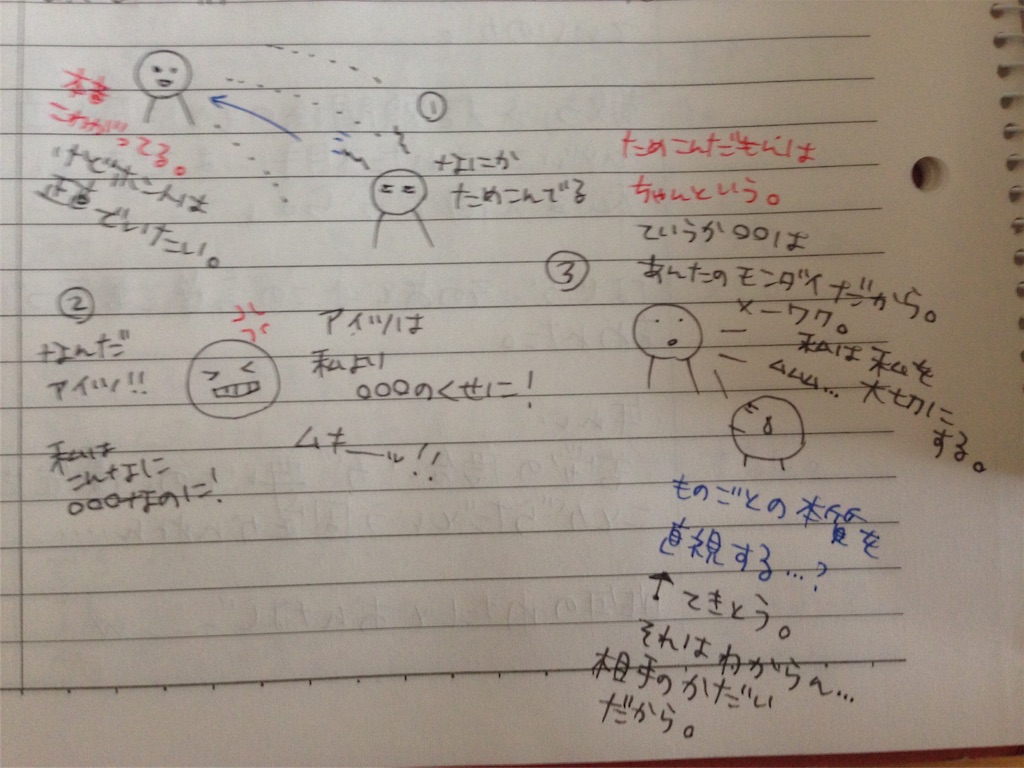 ①
こわがってる。
でいたい。
なにか
ためこんでる
ためこんだもんは
ちゃんという。
②
なんだ
アイツ!!
私は
こんなに
○○○なのに!
アイツは
私より
○○○のくせに!
ムキーッ!!
③
ていうか○○は
あんたのモンダイだから。
メーワク。
私は私を
大切に
する。
ムムム…
ものごとの本質を
直視する…?
↑てきとう。
それはわからん…
相手のかだい
だから。